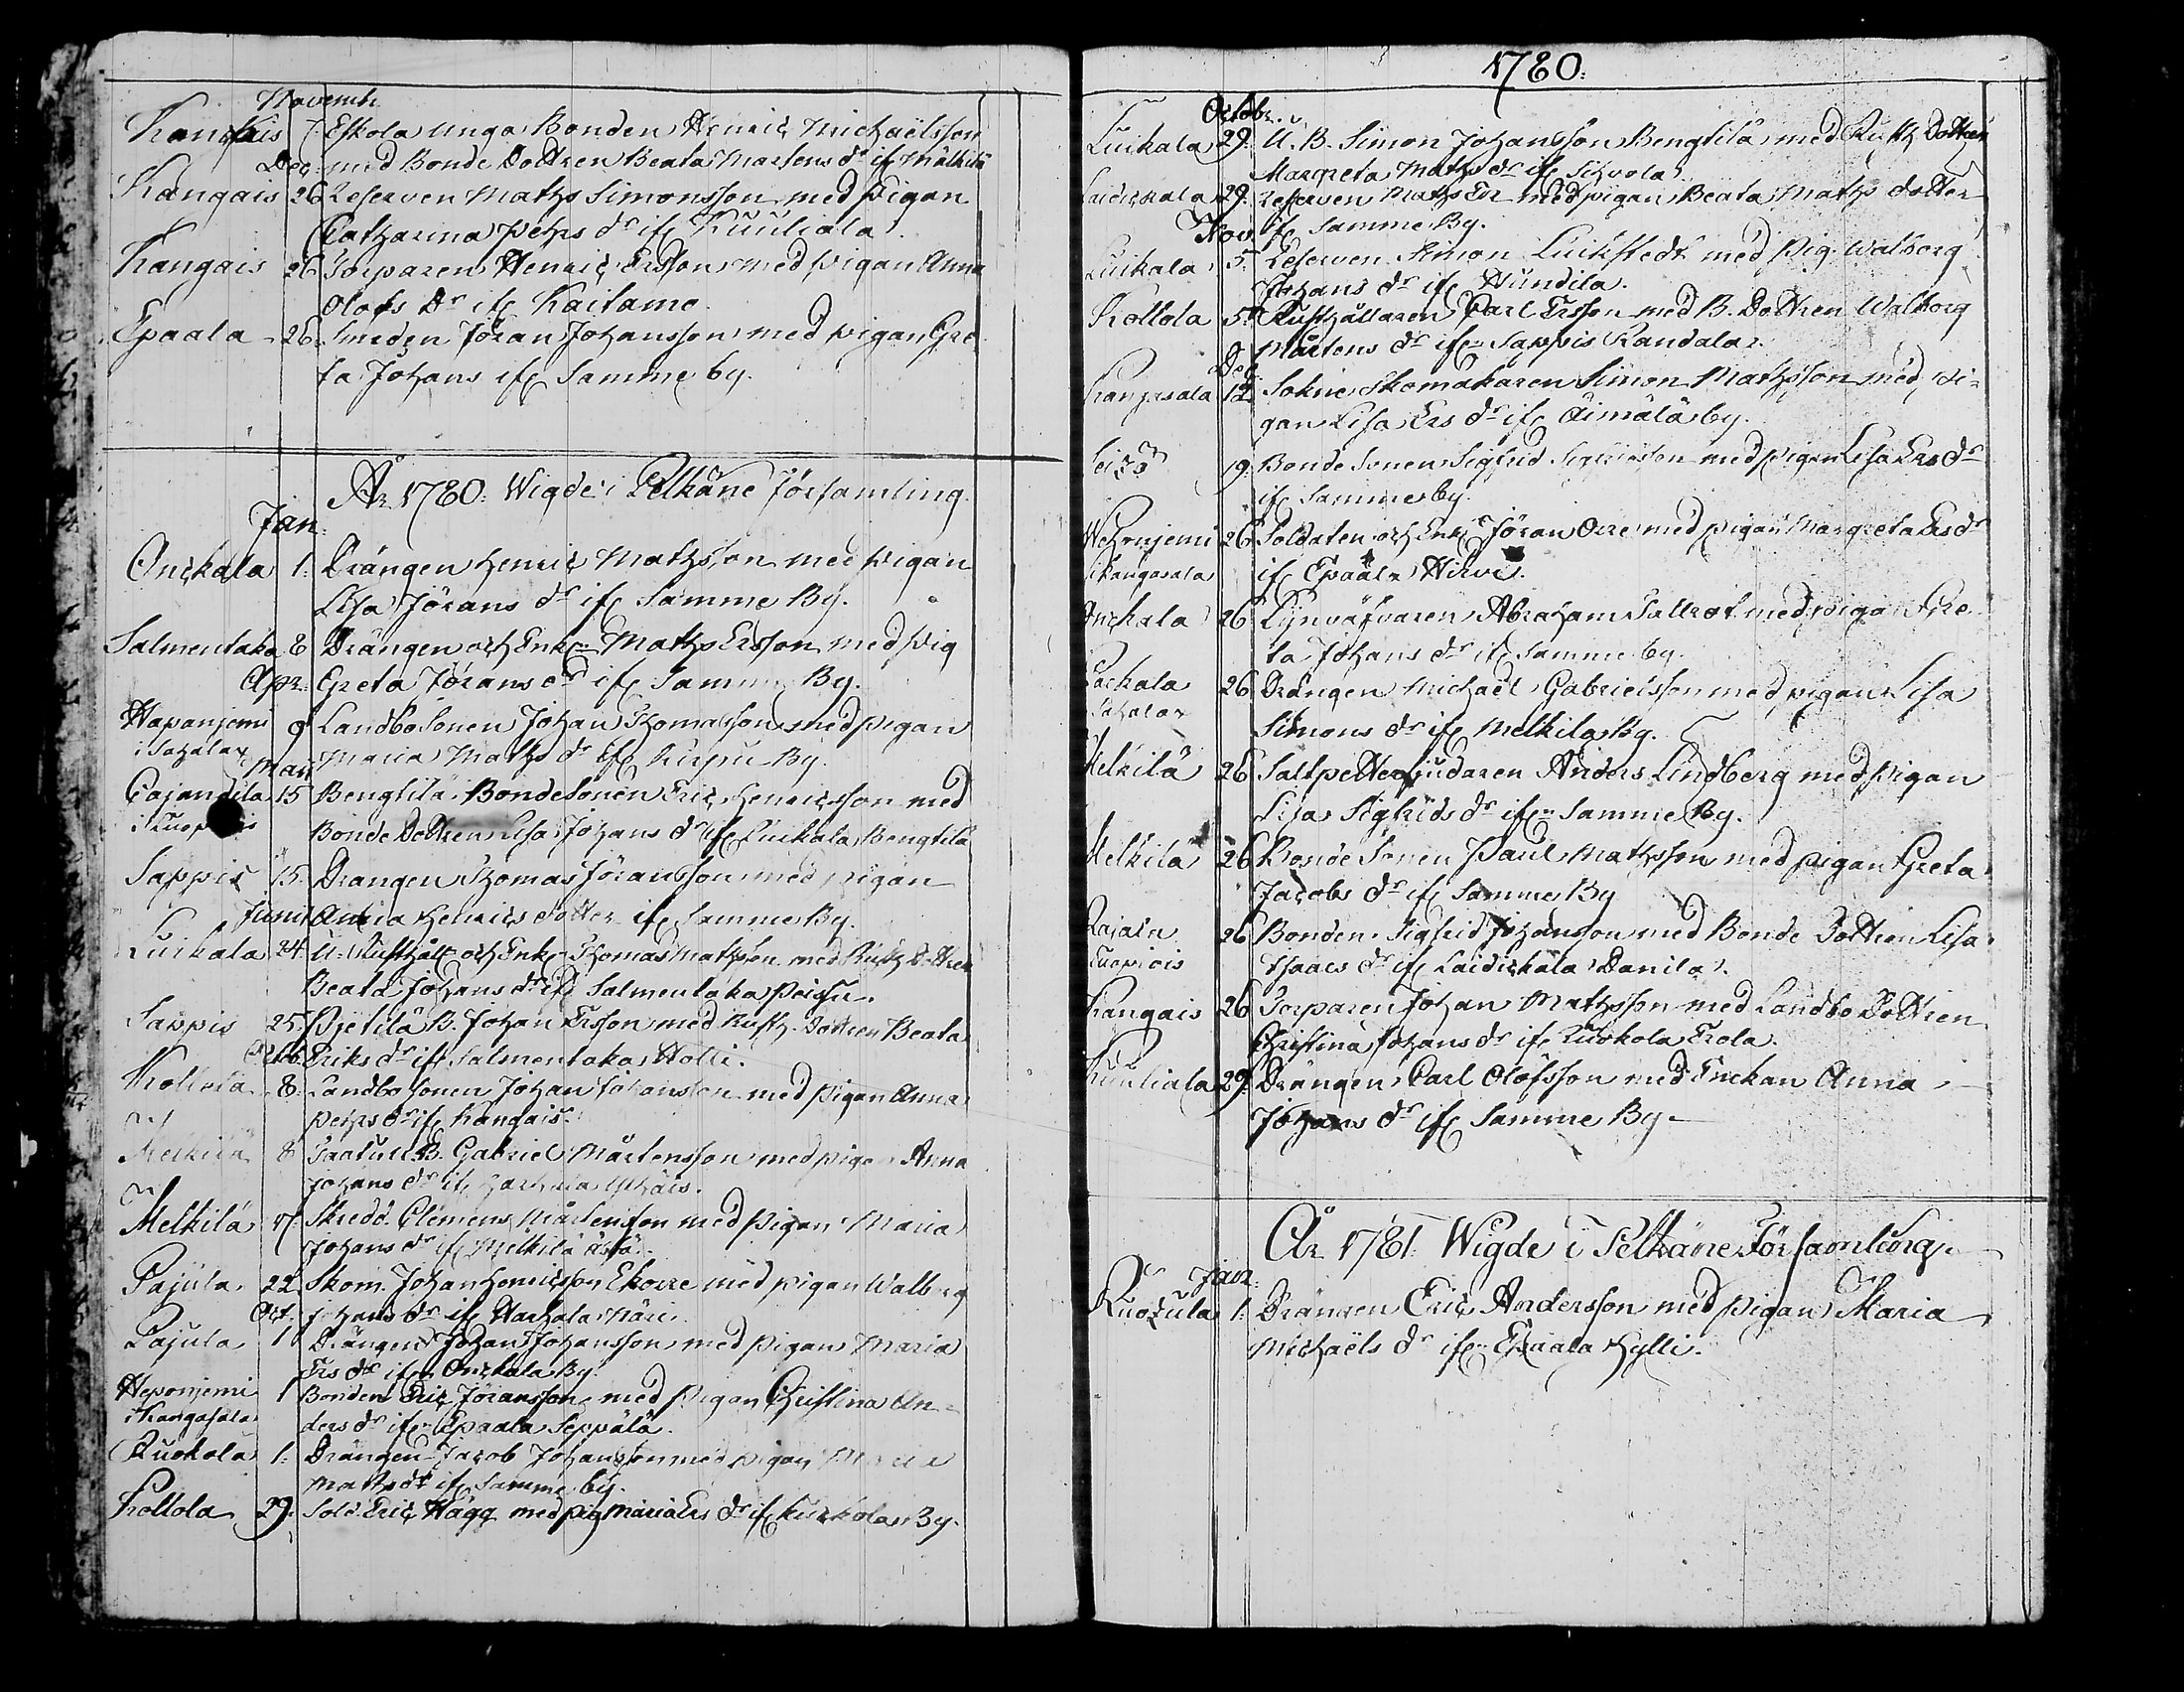 Novembr.
Kangais 7. Eskola unga Bonden Henric Michaëlsson
Dec. med Bonde Dottren Beata Mårtens dr if Mälkilä
Kangais 26 Reserven Maths Simonsson med Pigan
Catharina Pehrs dr if Kuuliala.
Kangais 26 Torparen Henric Ersson med pigan Anna
Olofs Dr if Kaitamo.
Epaala 26. Smeden Jöran Johansson med pigan Gre
ta Johans if Samme by.
År 1780: Wigde i Pelkäne Församling.
Jan.
Onckala 1: Drängen Henric Mathsson med Pigan
Lisa Jörans dr if Samme By.
Salmentaka 8 Drängen och Enkl. Maths Ersson med Pig
Apr. Greta Jörans dr if Samme By.
Hapanjemi 9 Landbo Sonen Johan Thomasson med pigan
i Sahalax Maria Maths dr if By.
Maij
15 Bengtilä Bonde Sonen Eric Henricsson med
i Bonde Dottren Lisa Johans dr if Luikala Bengtilä
Sappis 15. Drängen Thomas Jöransson med pigan
Junii Henrics dotter if Samme By.
Luikala 24. U. Rusthåll och Enkl. Thomas Mathsson med Rusth. Dottren
Beata Johans dr if Salmentaka Peissu.
Sappis 25. B. Johan Ersson med Rusth. Dottren Beata
Eriks dr if Salmentaka Holli.
Kollola 8. Landbo Sonen Johan Johansson med Pigan Anna
Pehrs dr if Kangais.
Melkilä 8 B. Gabriel Mårtensson med pigan Anna
Johans dr if
Melkilä 17. Skredd. Clemens Mårtensson med Pigan Maria
Johans dr if Melkilä
Pajula 22. Skom. Johan Henricsson Ekorre med pigan Walborg
Oct. Johans dr if
Pajula 1 Drängen Johan Johansson med Pigan Maria
Ers dr if Onckala By.
Heponjemi 1 Bonden Eric Jöransson med Pigan Christina An-
i Kangasala ders dr ifn Epaala Seppälä.
Ruokola 1: Drängen Jacob Johansson med pigan Maria
Maths dr if Samme by.
Kollola 29. Sold. Eric Hägg med pig Maria Ers dr if By.
1780.
Octobr.
Luikala 29. U. B. Simon Johansson Bengtilä med Rusth Dottren
Margreta Maths dr if Sihvola
Laidickala 29. Reserven Maths med pigan Beata Maths dotter
Nov. if Samme By.
Luikala 5. Reserven Simon Luikstedt med Pig. Walborg
Johans dr if Hundila.
Kollola 5. Rusthållaren Carl Ersson med B. Dottren Walborg
Mårtens dr if Sappis Randala.
Dec.
Kangasala 12. Sokne Skomakaren Simon Mathsson med pi-
gan Lisa Ers dr if Äimälä by.
19. Bonde Sonen Sigfrid Sigfridsson med pigan Lisa Ers dr
if Samme by.
Wehonjemi 26 Soldaten och Enkl. Jöran Orre med pigan Margreta Ers dr
i Kangasala if Epaala Hirvi.
Onckala 26 Linväfvaren Abraham med pigan Gre
ta Johans dr if Samme by.
26 Drängen Michaël Gabrielsson med pigan Lisa
Sahalax Simons dr if Melkilä By.
Melkilä 26 Saltpetersjudaren Anders Lindberg med Pigan
Lisa Sigfrids dr if Samme By.
Melkilä 26 Bonde Sonen Paul Mathsson med pigan Greta
Jacobs dr if Samme By
26 Bonden Sigfrid Johansson med Bonde Dottren Lisa
Isaacs dr if Laidickala Danila.
Kangais 26 Torparen Johan Mathsson med Landbo Dottren
Christina Johans dr if Ruokola Erola.
Kuuliala 29. Drängen Carl Olofsson med Enckan Anna
Johans dr if Samme By
År 1781. Wigde i Pelkäne Församling.
Jan.
1. Drängen Eric Andersson med Pigan Maria
Michaëls dr if Epaala Hylli.